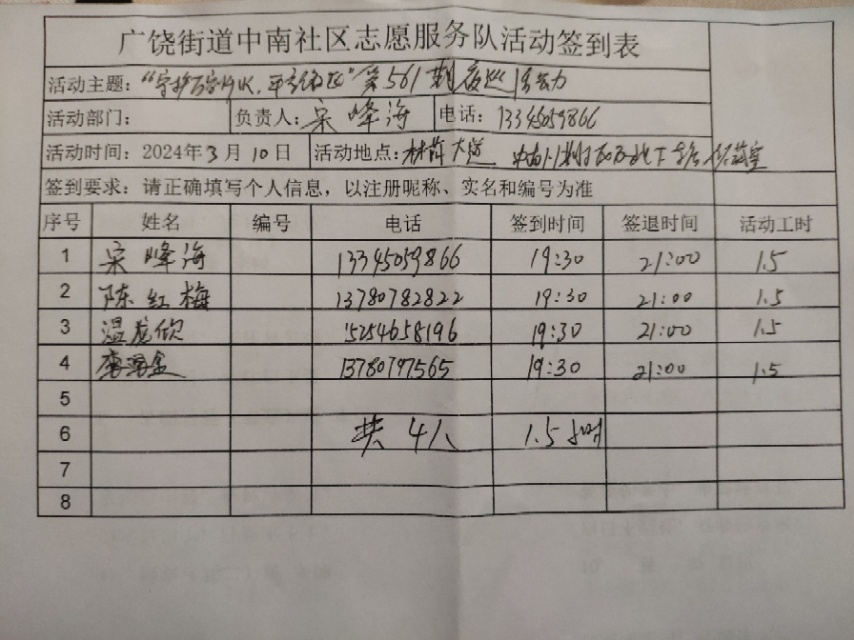 广饶街道中南社区志愿服务队活动签到表
活动主题：“守护万家灯火，平安社区”第561期夜巡活动
活动部门： 负责人：宋峰海 电话：13345059866
活动时间：2024年3月10日 活动地点：
签到要求：请正确填写个人信息，以注册昵称、实名和编号为准
序号 姓名 编号 电话 签到时间 签退时间 活动工时
1 宋峰海 13345059866 19:30 21:00 1.5
2 陈红梅 13780782822 19:30 21:00 1.5
3 温龙欣 15254658196 19:30 21:00 1.5
4 13780797565 19:30 21:00 1.5
5
6 共4人 1.5小时
7
8